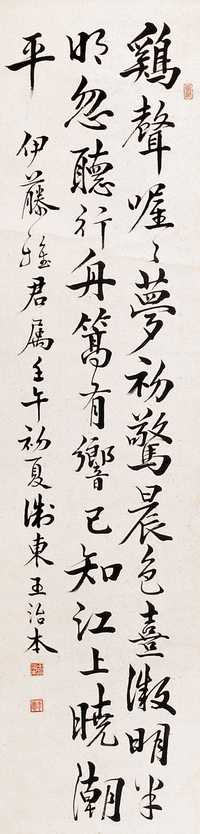 鷄聲喔〻夢初驚晨色熹微明半
明忽聽行舟篙有響已知江上曉潮
平
伊藤雅君属壬午初夏浙東王治本